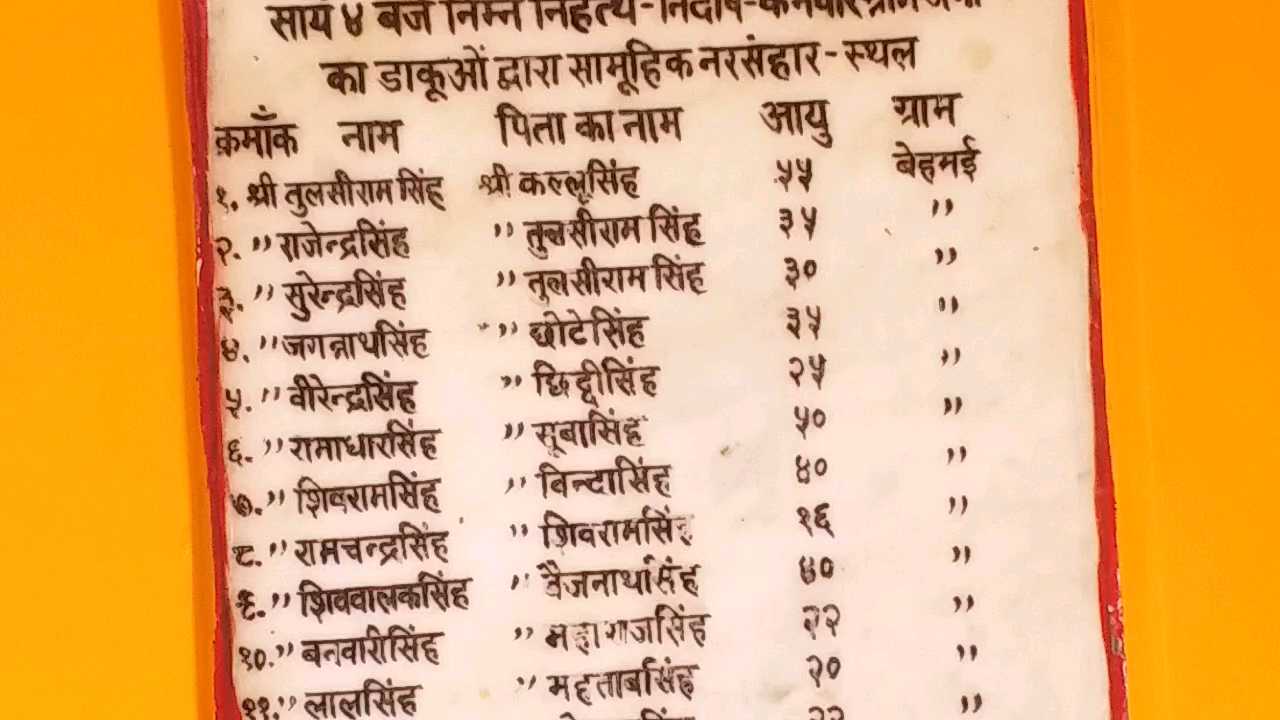 सायं ४ बजे निम्न निहत्थे-निर्दोष-कर्मवीर
का डाकूओं द्वारा सामूहिक नरसंहार-स्थल
क्रमाँक नाम पिता का नाम आयु ग्राम
१. श्री तुलसीराम सिंह श्री कल्लूसिंह ५५ बेहमई
२. '' राजेन्द्रसिंह '' तुलसीराम सिंह ३५ ''
३. '' सुरेन्द्रसिंह '' तुलसीराम सिंह ३० ''
४. '' जगन्नाथसिंह '' छोटेसिंह ३५ ''
५. '' वीरेन्द्रसिंह '' छिद्दीसिंह २५ ''
६. '' रामाधारसिंह '' सूबासिंह ५० ''
७. '' शिवरामसिंह '' विन्दासिंह ४० ''
८. '' रामचन्द्रसिंह '' शिवरामसिंह १६ ''
९. '' शिववालकसिंह '' वैजनाथसिंह ४० ''
१०. '' बनवारीसिंह '' महाराजसिंह २२ ''
११. '' लालसिंह '' महतार्बासिंह २० ''
२२ ''